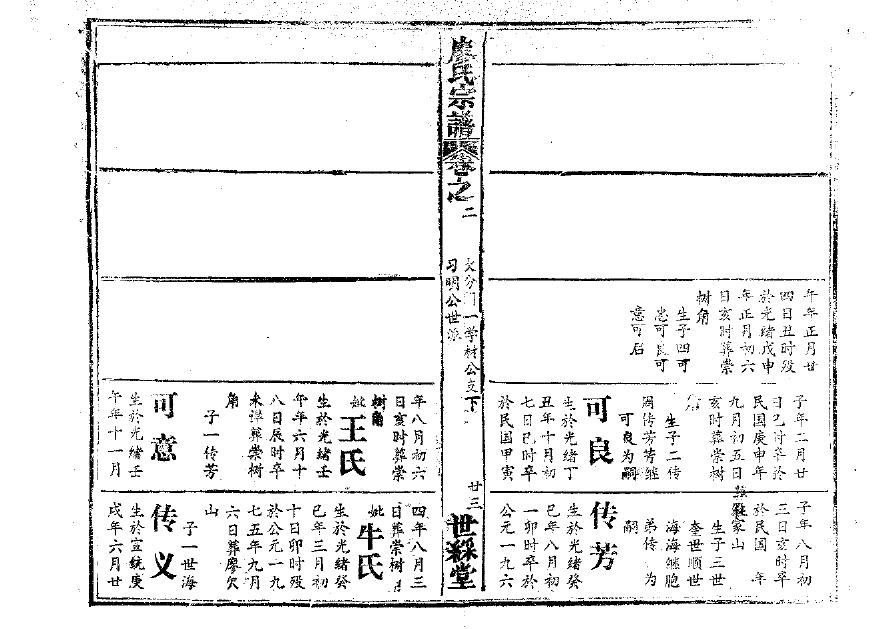 午年正月廿
四日丑时殁
於光緒戊申
年正月初六
日亥时葬崇
树角
生子四可
忠可良可
意可启
子年二月廿
日巳时卒於
民国庚申年
九月初五日
亥时葬崇树
角
生子二传
周传芳芳继
可良为嗣
可良
生於光緒丁
丑年十月初
七日巳时卒
於民国甲寅
子年八月初
三日亥时卒
於民国 年
家山
生子三世
奎世順世
海海继胞
弟传 为
嗣
传芳
生於光緒癸
巳年八月初
一卯时卒於
公元一九六
氏宗譜
卷之二
文分门一学材公支下
习明公世派
廿三
世綵堂
年八月初六
日亥时葬崇
树角
妣王氏
生於光緒壬
午年六月十
八日辰时卒
未詳葬崇树
角
子一传芳
可意
生於光緒壬
午年十一月
四年八月三
日葬崇树
妣牛氏
生於光緒癸
巳年三月初
十日卯时殁
於公元一九
七五年九月
六日葬廖欠
山
子一世海
传义
生於宣統庚
戌年六月廿